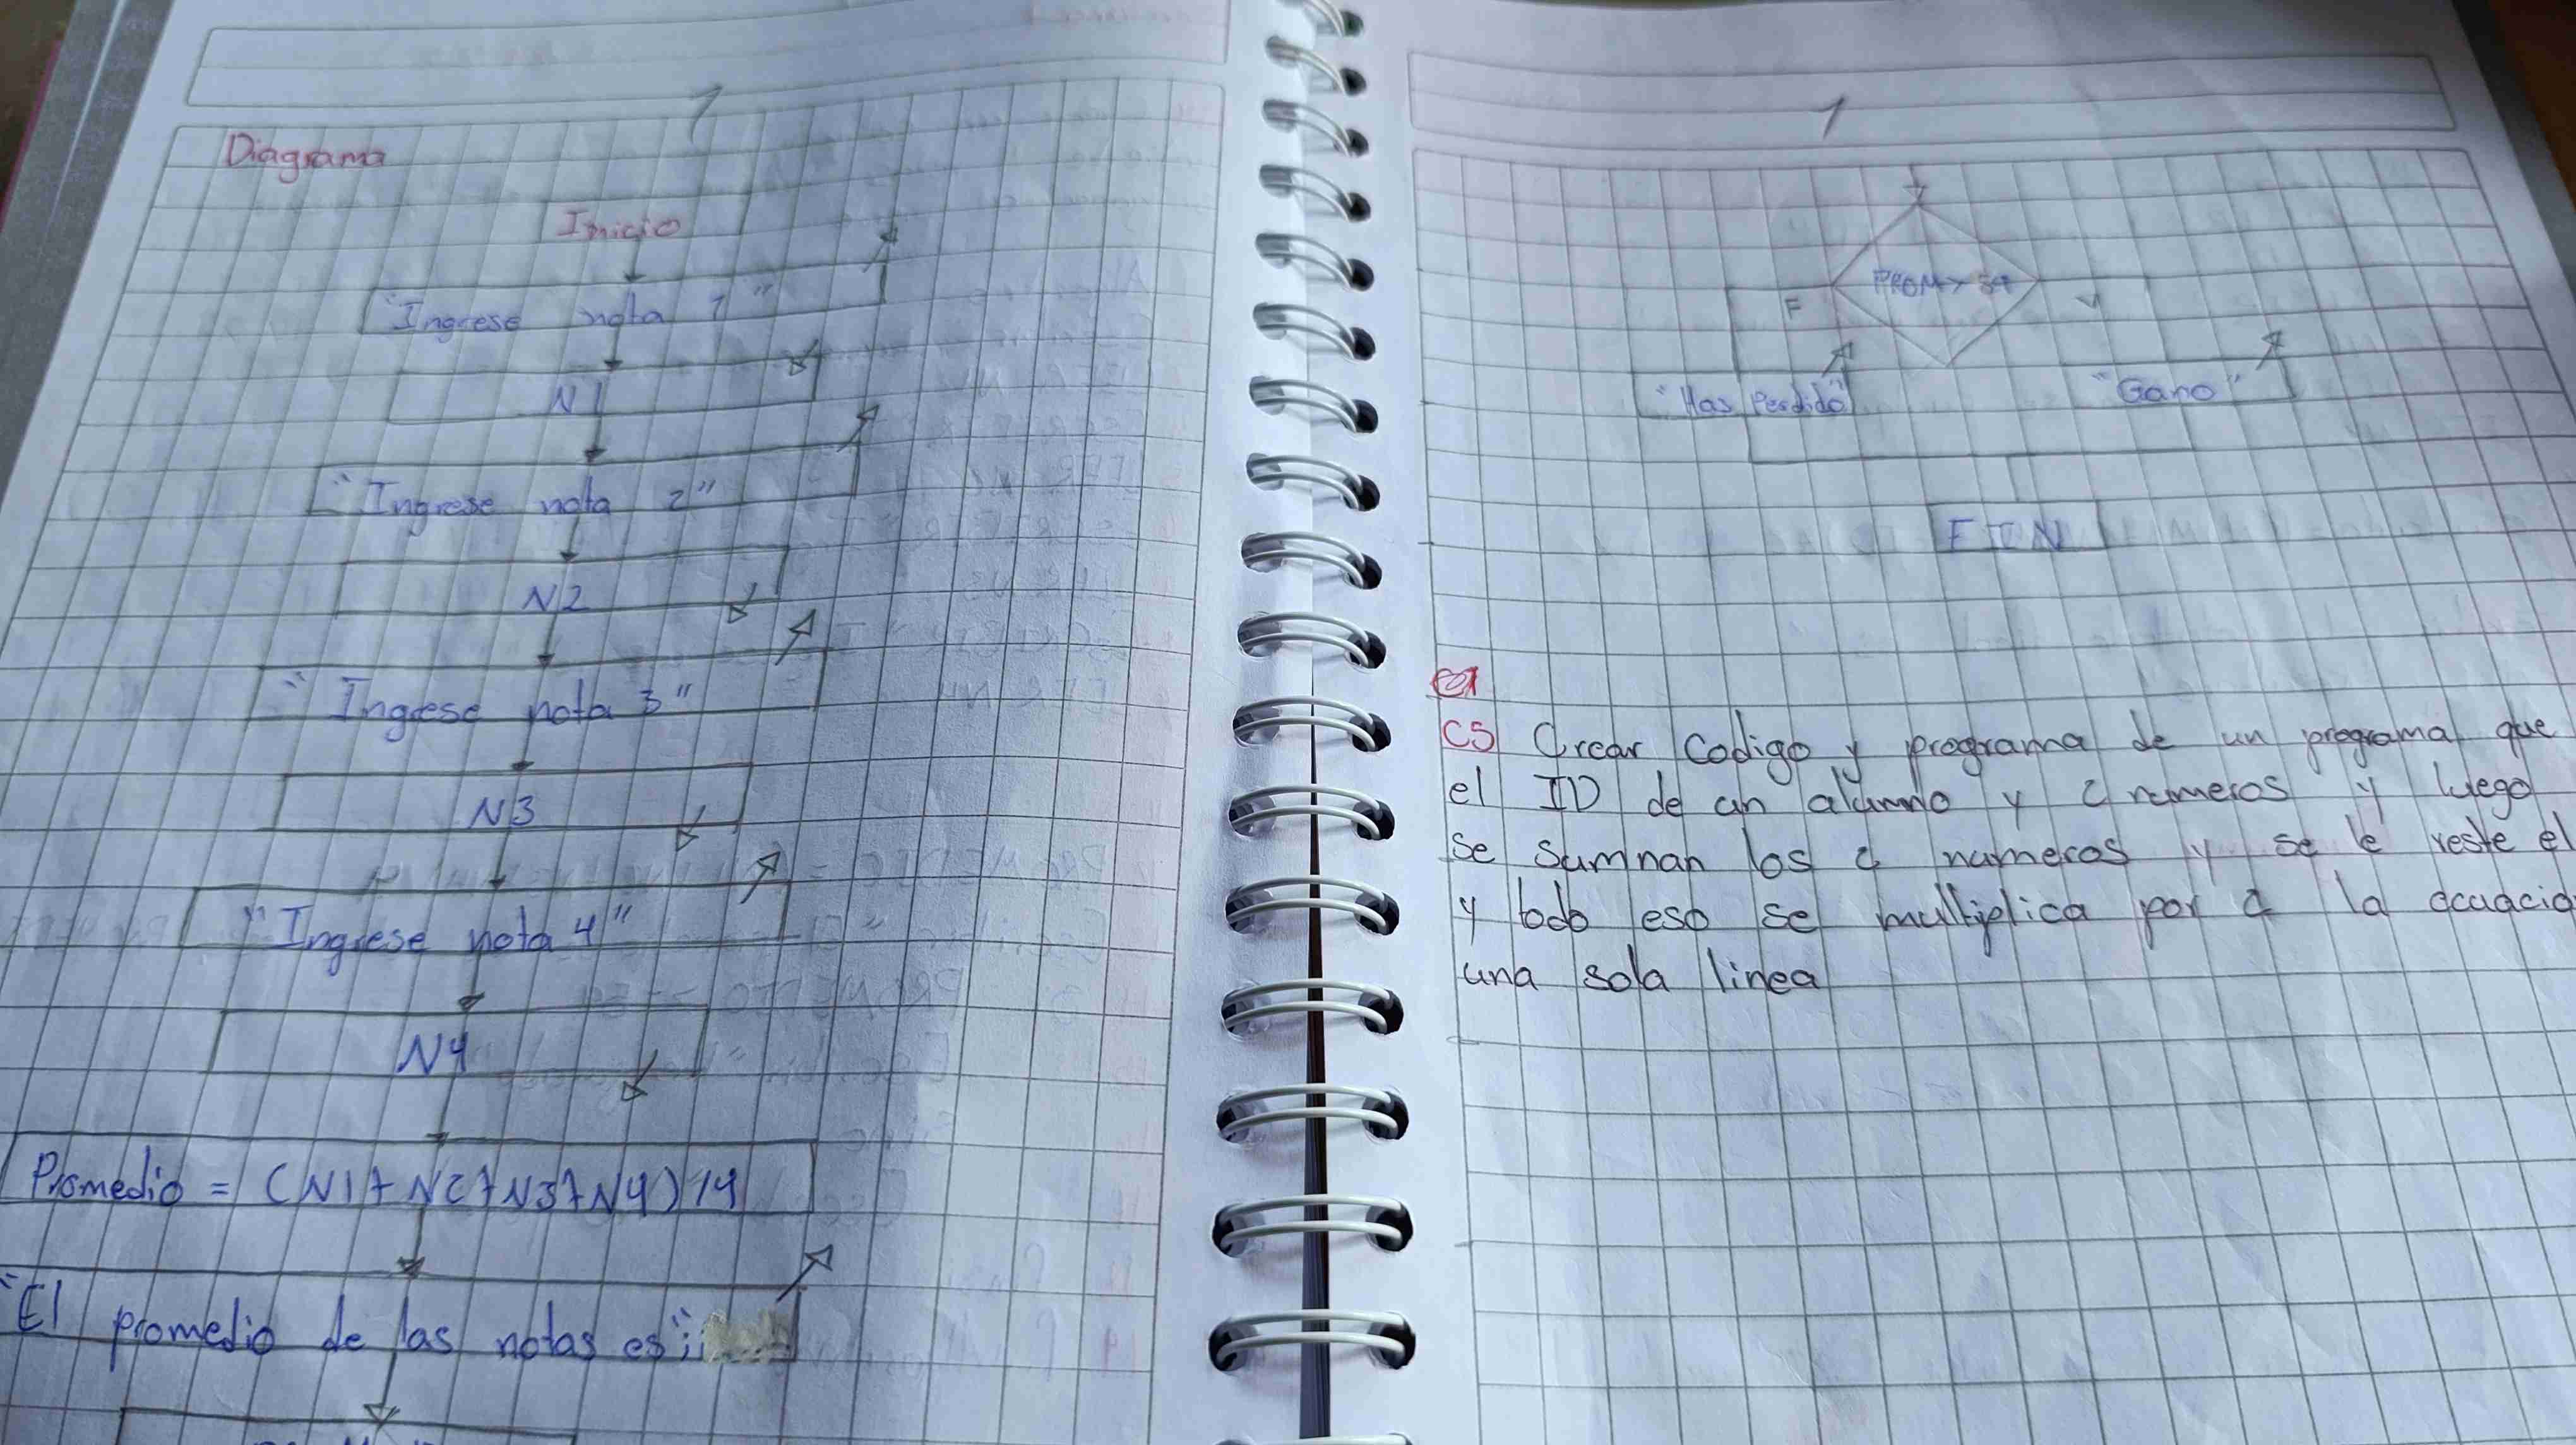 1
Diagrama
Inicio
"Ingrese nota 1"
N1
"Ingrese nota 2"
N2
"Ingrese nota 3"
N3
"Ingrese nota 4"
N4
Promedio = (N1+N2+N3+N4)/4
"El promedio de las notas es";
1
PROM>59
F
V
"Has Perdido"
"Gano"
FIN
C5 Crear Codigo y programa de un programa que
el ID de un alumno y 2 numeros y luego
se sumnan los 2 numeros y se le reste el
y todo eso se multiplica por 2 la acuacio
una sola linea